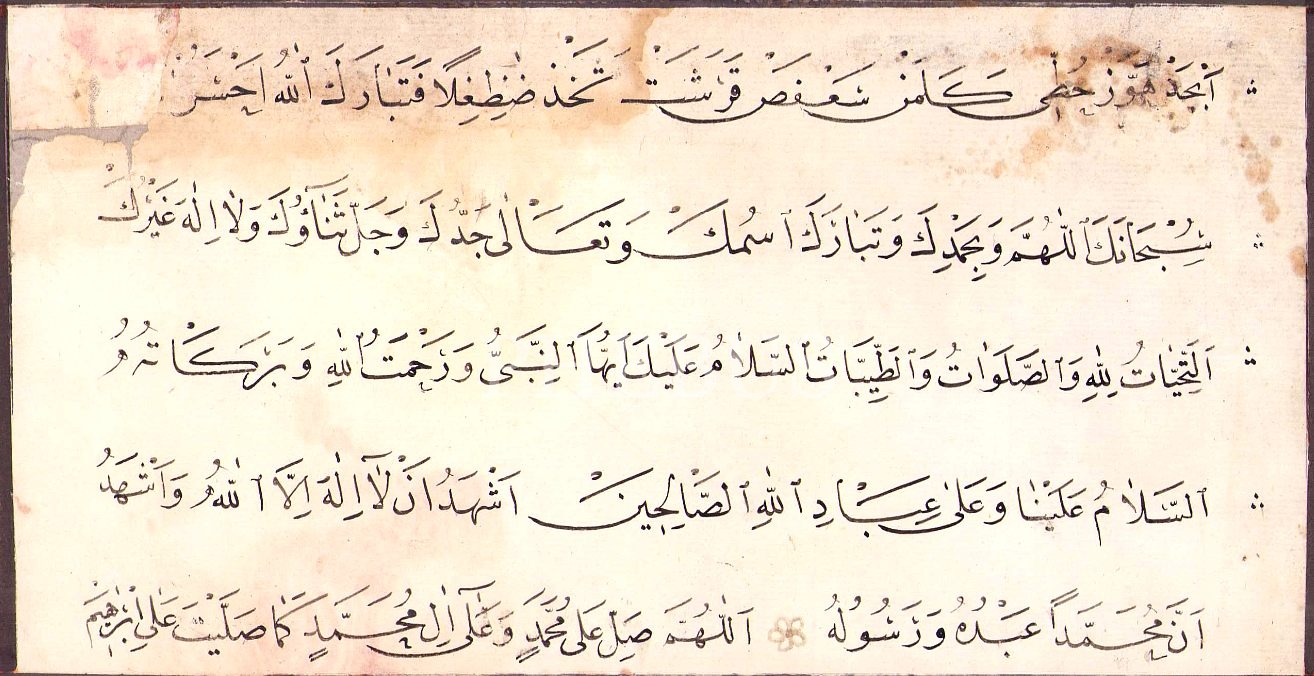 اَبْجَدْ هَوَّزْ حُطّى كَلَمَنْ سَعْفَصْ قَرَشَتْ ثَخَّذْ ضَظِغٍلًا فَتَبَارَكَ ٱللّٰهُ اَحْسَنُ
سُبْحَانَكَ ٱللّٰهُمَّ وَبِحَمْدِكَ وَتَبَارَكَ ٱسْمُكَ وَتَعَالٰى جَدُّكَ وَجَلَّ ثَنَآؤُكَ وَلَا اِلٰهَ غَيْرُكَ
اَلتَّحِيَّاتُ لِلّٰهِ وَٱلصَّلَوَاتُ وَٱلطَّيِّبَاتُ ٱلسَّلَامُ عَلَيْكَ اَيُّهَا ٱلنَّبِىُّ وَرَحْمَتُ ٱللّٰهِ وَبَرَكَاتُهُ
ٱلسَّلَامُ عَلَيْنَا وَعَلٰى عِبَادِ ٱللّٰهِ ٱلصَّالِحِينَ اَشْهَدُ اَنْ لَآ اِلٰهَ اِلَّا ٱللّٰهُ وَاَشْهَدُ
اَنَّ مُحَمَّدًا عَبْدُهُ وَرَسُولُهُ اَللّٰهُمَّ صَلِّ عَلٰى مُحَمَّدٍ وَعَلٰٓى اٰلِ مُحَمَّدٍ كَمَا صَلَّيْتَ عَلٰى اِبْرٰهِيمَ